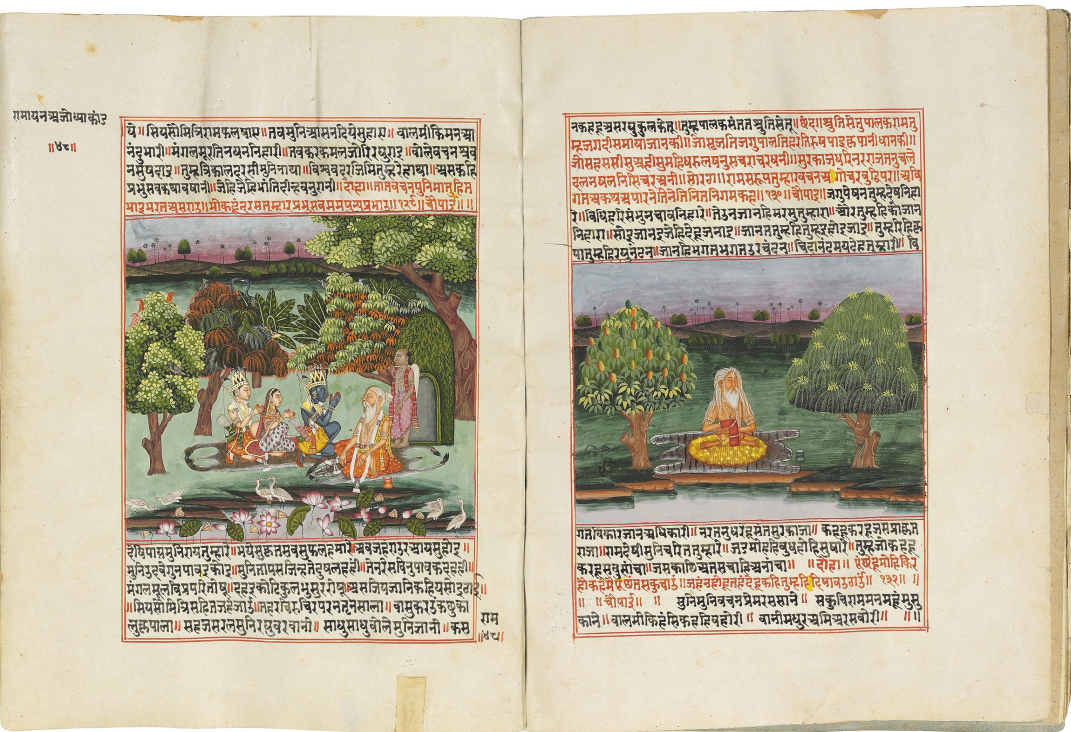 रामायनअजोध्याकां३
॥४८॥
ये॥ सियसौमित्रिरामफलषाए॥तबमुनिआसनदियेसुहाए॥ बालमीकिमनआ
नंदुभारी॥मंगलमूरतिनयननिहारी॥तबकरकमलजोरिरघुराई॥बोलेबचनश्रव
नसुषदाई॥तुम्हत्रिकालदरसीमुनिनाथा॥बिश्वबदरजिमितुम्हरेहाथा॥असकहि
प्रभुसबकथाबषानी॥जेहिजेहिभांतिदीन्हबनुरानी॥दोहा॥तातबचनपुनिमातुहित
भाइभरतअसराउ॥मोकहंदरसतुम्हारप्रभुसबममपुन्यप्रभाउ॥१२९॥चौपाई॥॥
देषिपायमुनिरायतुम्हारे॥भयेसुकृतसबसुफलहमारे॥अबजहंराउरआयसुहोई॥
मुनिउदबेगुनपावइकोई॥मुनितापसजिन्हतेदुषलहही॥तेनरेसबिनुपावकदहही॥
मंगलमूलबिप्रपरितोषू॥दहइकोटिकुलभूसुररोषू॥असजियजानिकहियसोइठाऊं
॥सियसौमित्रिसहितजहंजाऊं॥तहंरचिरुचिरपरनतृनसाला॥बासुकरउंकछुका
लकृपाला॥ सहजसरलसुनिरघुबरबानी॥ साधुसाधुबोलेमुनिज्ञानी॥ कस
राम
॥४८॥
नकहहुअसरघुकुलकेतू॥तुम्हपालकसंततश्रुतिसेतू॥छंद॥श्रुतिसेतुपालकरामतु
म्हजगदीसमायाजानकी॥जोसृजतिजगुपालतिहरतिरुषपाइकृपानिधानकी॥
जोसहससीसुअहीसुमहिधरुलषनुसचराचरधनी॥सुरकाजधरिनरराजतनुचले
दलनषलनिसिचरअनी॥सोरठा॥रामसरूपतुम्हारबचनअगोचरबुद्धिपर॥अबि
गतअकथअपारनेतिनेतिनितनिगमकह॥१३०॥चौपाई॥जगुपेषनतुम्हदेषनिहा
रे॥बिधिहरिसंभुनचावनिहारे॥तेउनजानहिमरमुतुम्हारा॥औरतुम्हहिकोजान
निहारा॥सोइजानइजेहिदेहुजनाई॥जानततुम्हहितुम्हइहोइजाई॥तुम्हरीहिकृ
पातुम्हहिरघुनंदन॥जानहिभगतभगतउरचंदन॥चिदानंदमयदेहतुम्हारी॥बि
गतबिकारजानअधिकारी॥नरतनुधरेहुसंतसुरकाजा॥ कहहुकरहुजसप्राकृत
राजा॥रामदेषिसुनिचरिततुम्हारे॥जडमोहहिबुधहोहिसुषारे॥तुम्हजोकहहु
करहुसबुसांचा॥जसकाछियतसचाहिअनांचा॥ ॥दोहा॥ पूंछेहुमोहिकिर
हौकहंमैपूंछतसकुचाउं॥जहंनहोहुतहंदेहुकहितुम्हहिदेषावउठाउं॥ १३१॥
॥ ॥चौपाई॥ ॥ सुनिमुनिबचनप्रेमरससाने॥ सकुचिराममनमहुमुसु
काने॥बालमीकिहंसिकहहिबहोरी॥ बानीमधुरअमिअरसबोरी॥ ॥॥